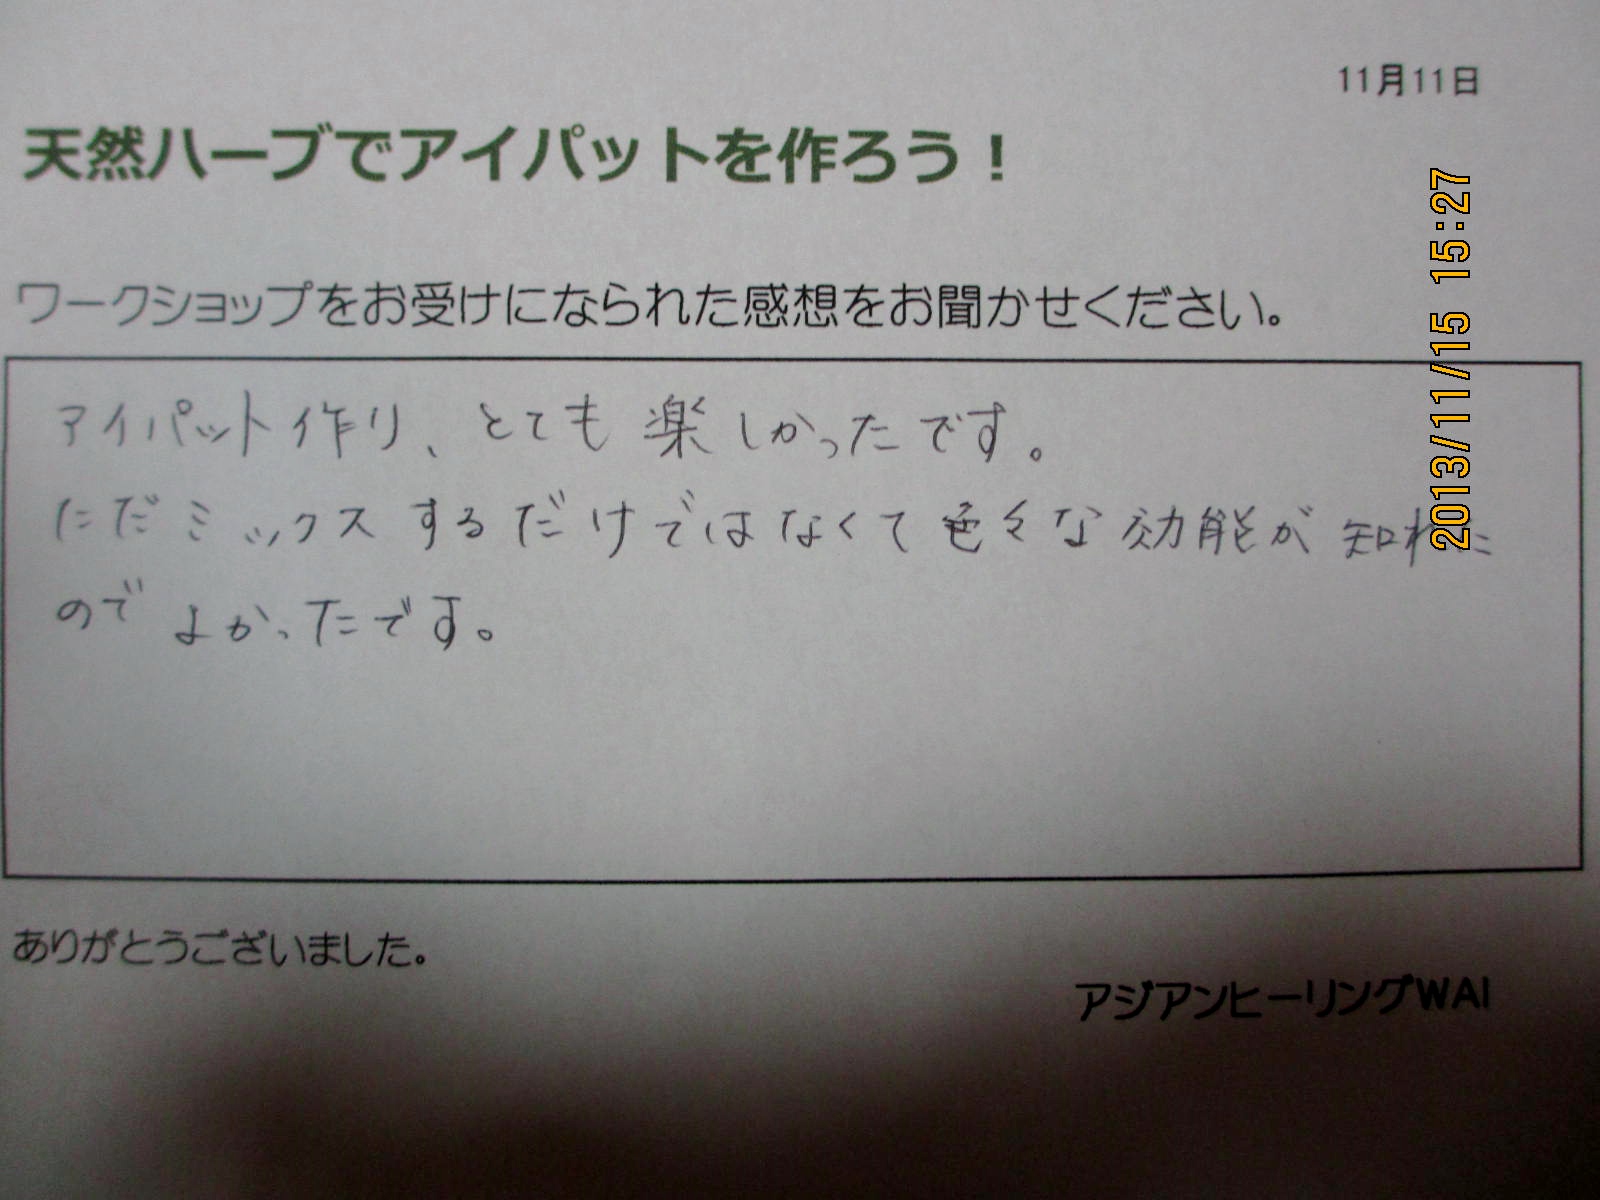 11月11日
天然ハーブでアイパットを作ろう！
ワークショップをお受けになられた感想をお聞かせください。
アイパット作り、とても楽しかったです。
ただミックスするだけではなくて色々な効能が知れた
のでよかったです。
ありがとうございました。
アジアンヒーリングWAI
2013/11/15 15:27